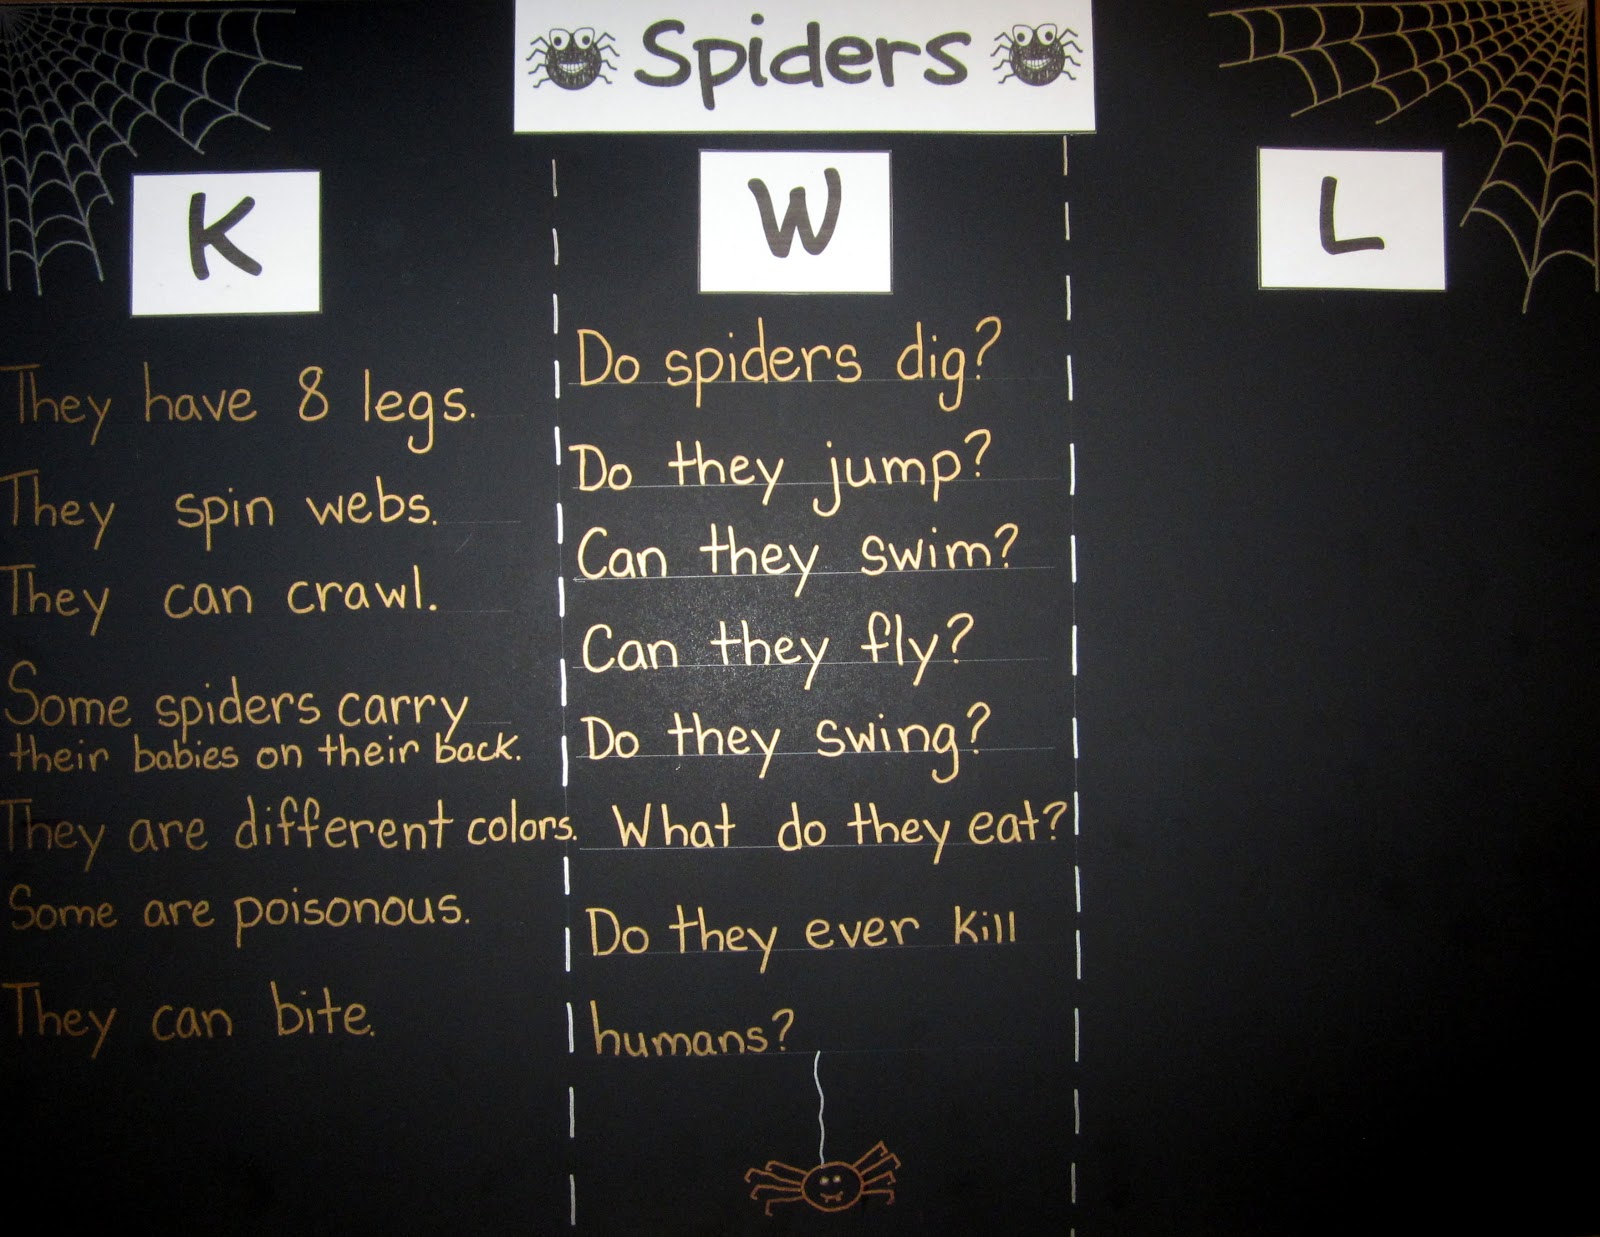 Spiders
K
They have 8 legs.
They spin webs.
They can crawl.
Some spiders carry
their babies on their back.
They are different colors.
Some are poisonous.
They can bite.
W
Do spiders dig?
Do they jump?
Can they swim?
Can they fly?
Do they swing?
What do they eat?
Do they ever kill
humans?
L